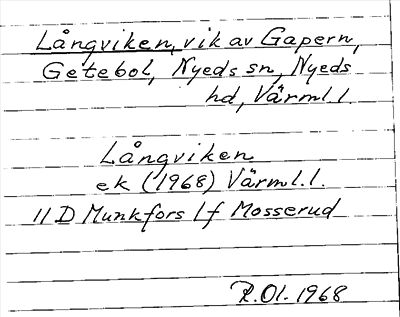 Långviken, vik av Gapern,
Getebol, Nyeds sn, Nyeds
hd, Värml. l.
Långviken
ek (1968) Värml. l.
11 D Munkfors 1f Mosserud
R.Ol. 1968